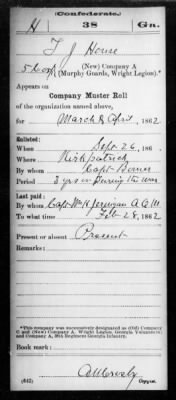 (Confederate.)
H 38 Ga.
T J House
(New) Company A
(Murphy Guards, Wright Legion).*
Appears on
Company Muster Roll
of the organization named above,
for March & April, 1862
Enlisted:
When Sept 26, 186
Where Kirkpatrick
By whom Capt
Period 3 yrs or During the war
Last paid:
By whom Capt Wm H A Q M
To what time Feb 28, 1862
Present or absent Present
Remarks:
*This company was successively designated as (Old) Company
C and (New) Company A, Wright Legion, Georgia Volunteers;
and Company A, 38th Regiment Georgia Infantry.
Book mark:
(642)
Copyist.